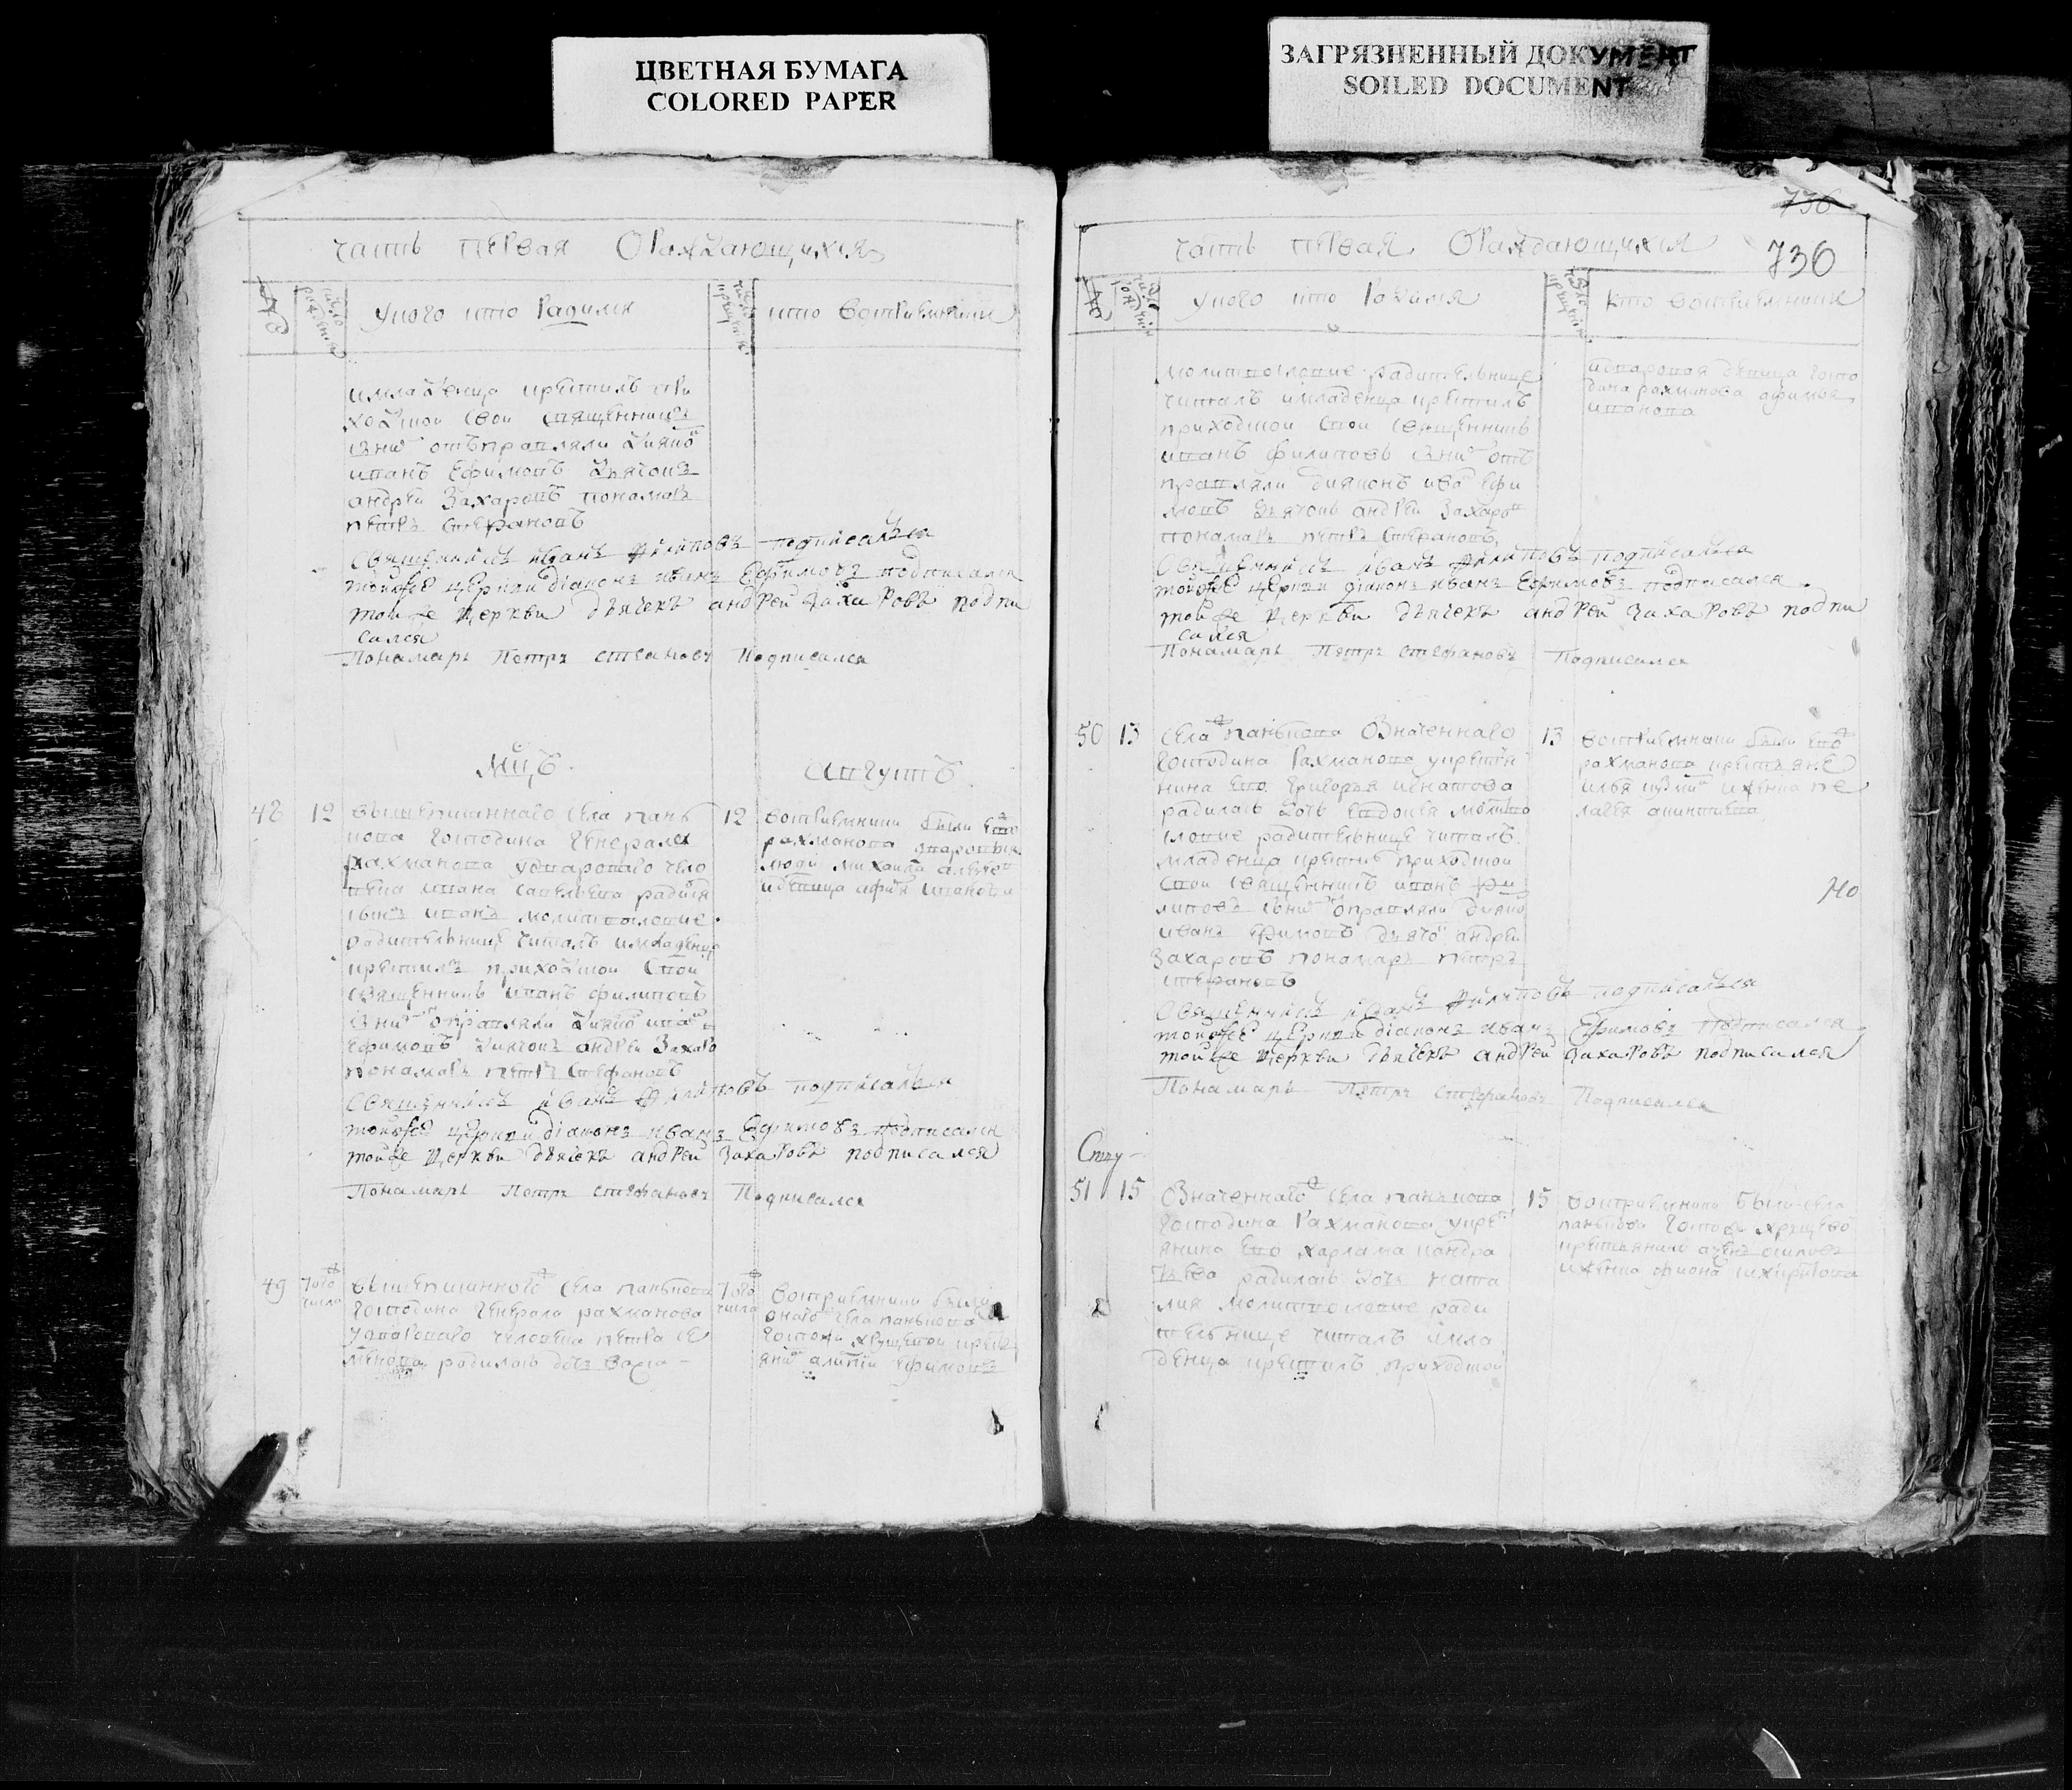 ЦВЕТНАЯ БУМАГА
COLORED PAPER
ЗАГРЯЗНЕННЫЙ ДОКУМЕНТ
SOILED DOCUMENT
часть первая О раждающихся
№
число рождения
у кого кто радился
число крещения
кто восприемники
и младенца крестилъ при
ходской свой священникъ
с ним отъправляли диако
иванъ Ефимовъ дьячокъ
андрей Захаровъ понамарь
петръ стефановъ
Священникъ иванъ филиповъ подписался
тойже церкви діаконъ иванъ Ефимовъ подписался
той же церкви дьячекъ андрей Захаровъ подпи
сался
Понамарь Петръ стефановъ Подписался
Мцъ Августъ
48 12
вышеписаннаго села пань
кова господина генерала
рахманова у двароваго чело
века ивана савельева радился
сынъ иванъ молитвословие
радительнице читалъ и младенца
крестилъ приходской свой
священникъ иванъ филиповъ
с ним отправляли диако иван
Ефимовъ диячокъ андрей Захаро
понамарь петръ стефановъ
12
восприемники были ево
рахманова дваровыя
люди михаила алексев
и девица афия иванова
Священникъ иванъ филиповъ подписался
тойже церкви діаконъ иванъ Ефимовъ подписался
той же церкви дьячекъ андрей Захаровъ подписался
Понамарь Петръ стефановъ Подписался
49 того числа
вышеписанного села панькова
господина генерала рахманова
у двароваго человека петра се
менова радилась дочь варва-
того числа
восприемники были
оного села панькова
госпожи хрущевой кресть
яни алипий ефимовъ
736
736
часть первая О раждающихся
№
число рождения
у кого кто радился
число крещения
кто восприемники
молитвословие радительнице
читалъ и младенца крестилъ
приходской свой священникъ
иванъ филиповъ с ним отъ
правляли дияконъ ива ефи
мовъ дьячокъ андрей Захаро
понамарь петръ стефановъ
и дваровая девица госпо
дина рахманова афимья
иванова
Священникъ иванъ филиповъ подписался
тойже церкви діаконъ иванъ Ефимовъ подписался
той же церкви дьячекъ андрей Захаровъ подпи
сался
Понамарь Петръ стефановъ Подписался
50 13
села панькова Означеннаго
господина Рахманова у крестья
нина ево григорья игнатова
радилась дочь евдокея молитво
словие радительнице читалъ
младенца крестилъ приходской
свой священникъ иванъ фи
липовъ с ним отправляли дияко
иванъ ефимовъ дьячо андрей
Захаровъ понамарь петръ
стефановъ
13
восприемники были ево
рахманова крестьяне
илья и жена пе
лагея аникиева
Но
Священникъ иванъ филиповъ подписался
тойже церкви діаконъ иванъ Ефимовъ подписался
той же церкви дьячекъ андрей Захаровъ подписался
Понамарь Петръ стефановъ Подписался
51 15
Означеннаго села панькова
господина Рахманова у крес
янина ево харлама кандра
тьева радилась дочь ната
лия молитвословие ради
тельнице читалъ и мла
денца крестилъ приходской
15
восприемники были села
панькова госпожи хрущево
крестьянинъ осиповъ
и жена